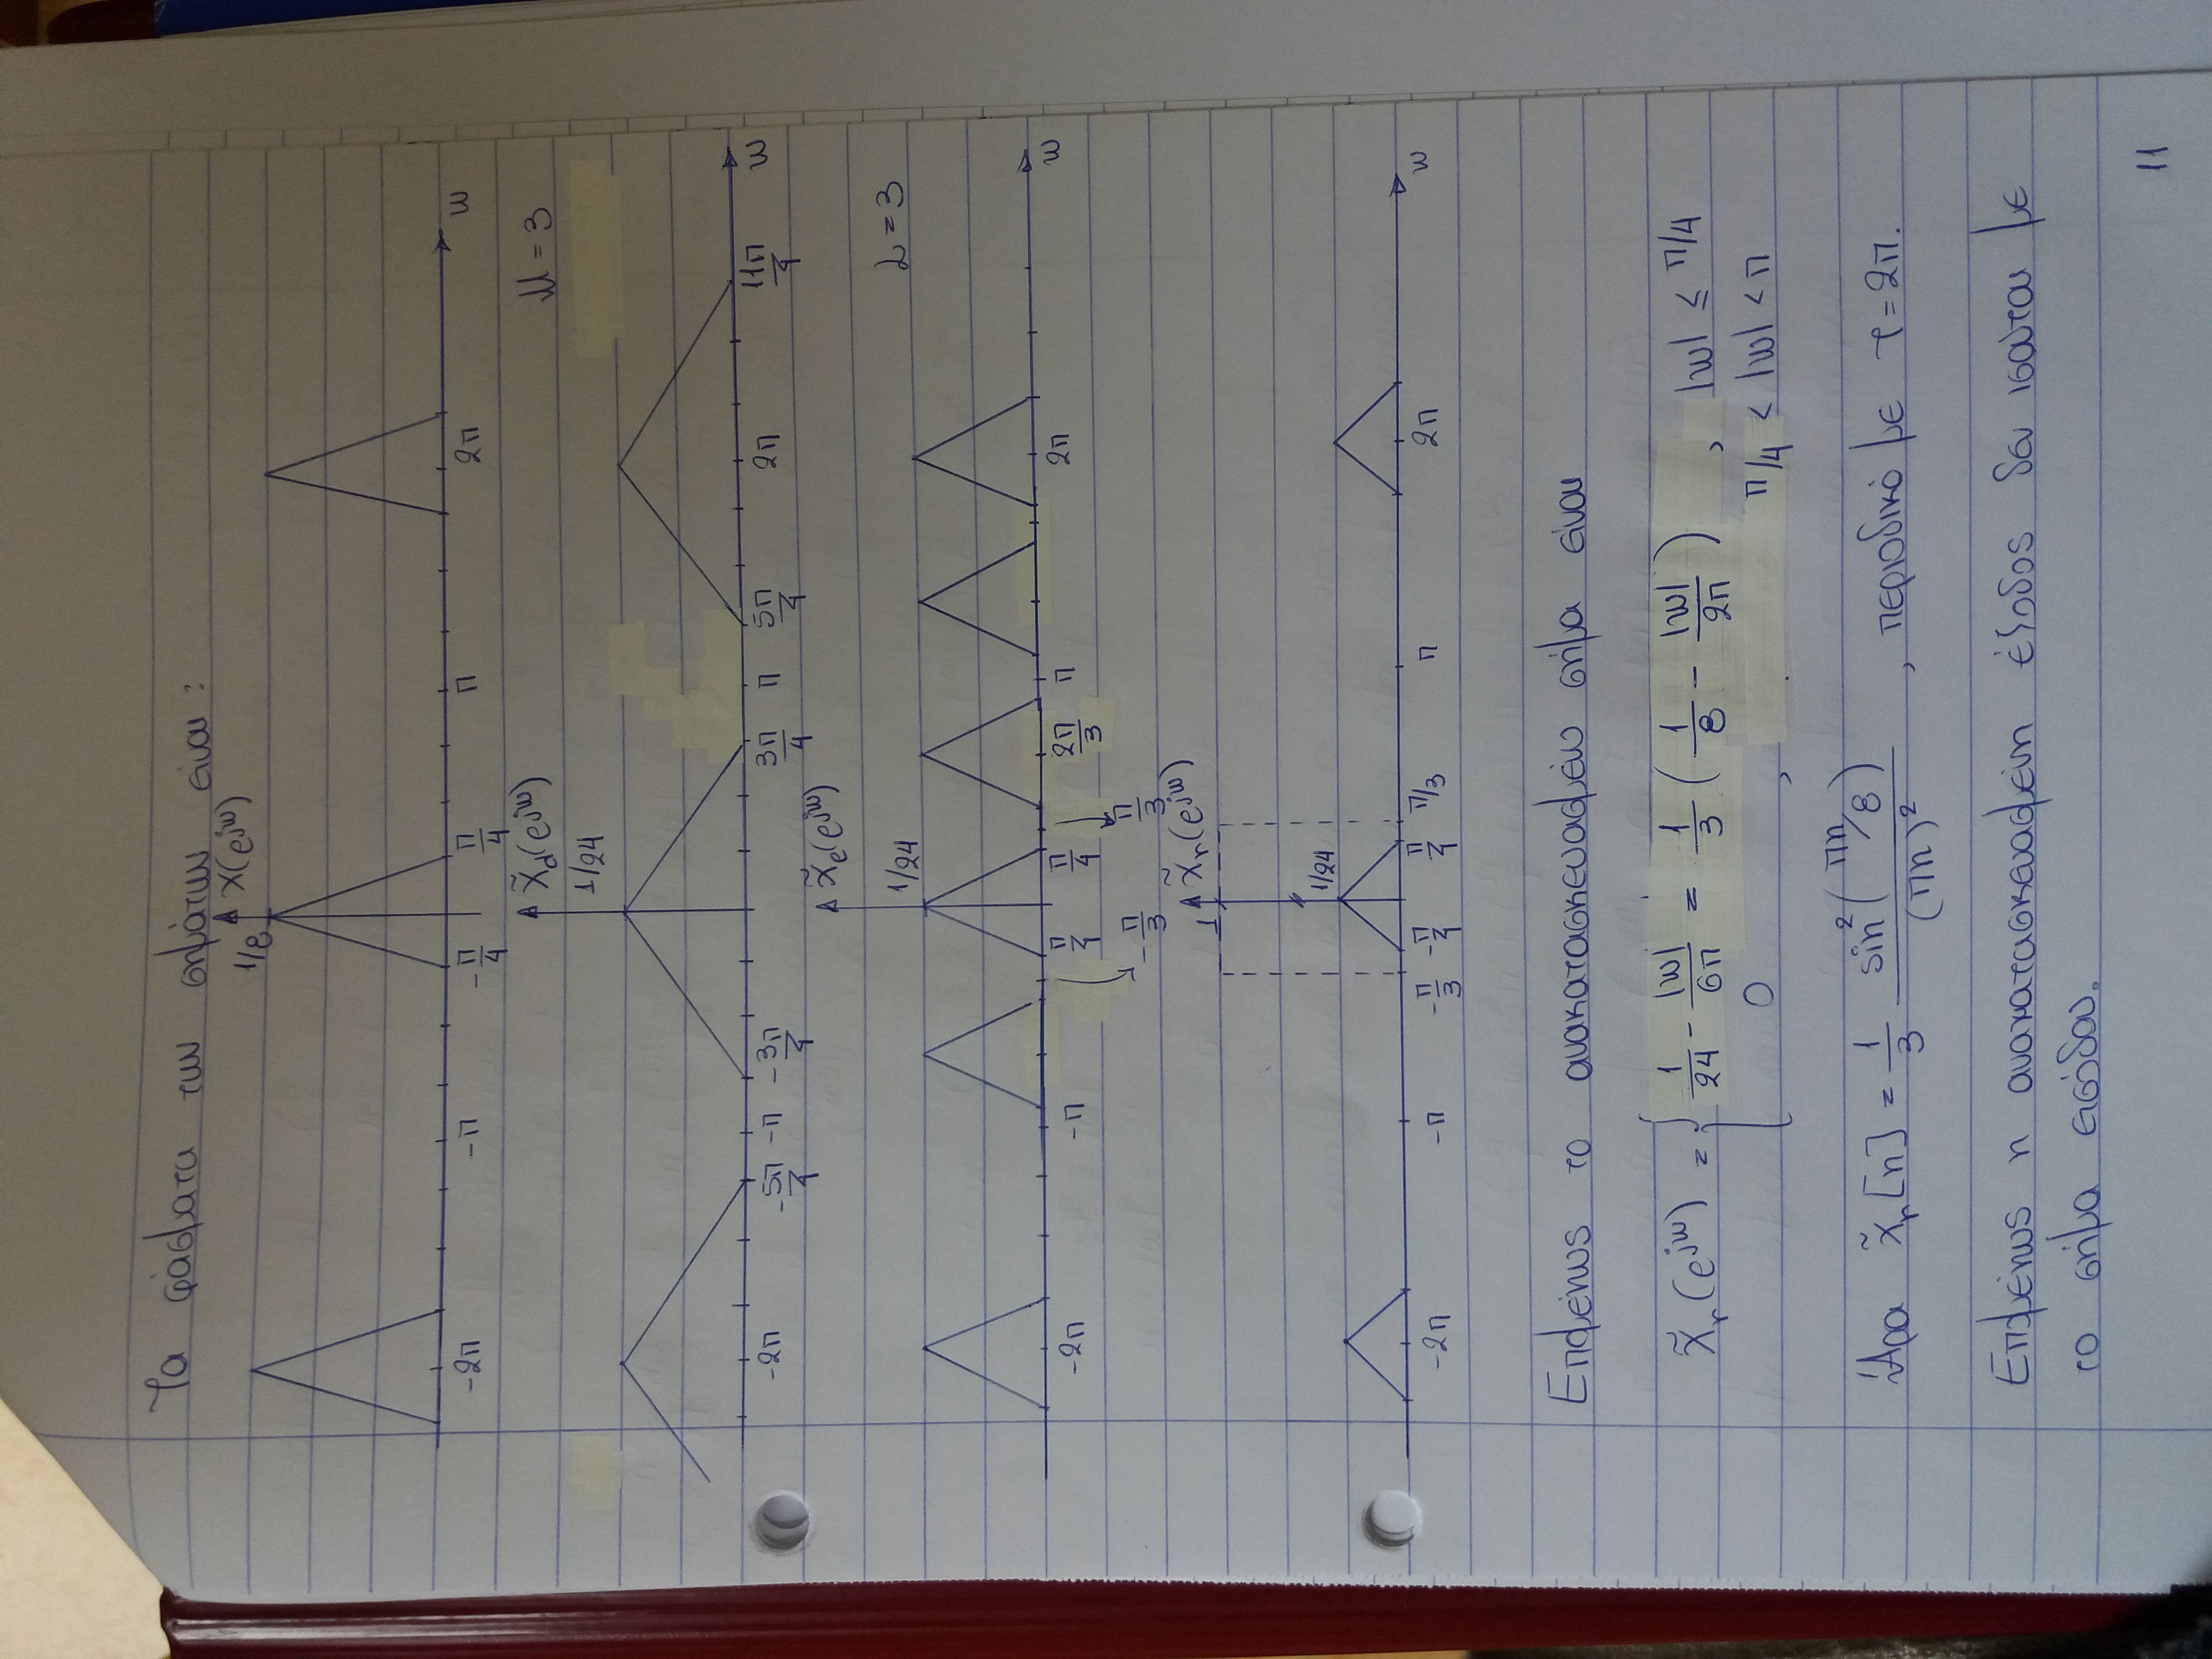 Τα φάσματα των σημάτων είναι:
1/8 X(e^{jω})
-2π -π -π/4 π/4 π 2π ω
X̃_d(e^{jω}) M = 3
1/24
-2π -5π/4 -π -3π/4 3π/4 π 5π/4 2π 11π/4 ω
X̃_e(e^{jω})
1/24 L = 3
-2π -π π/4 π/4 2π/3 π 2π ω
-π/3 π/3
X̃_r(e^{jω})
1
1/24
-2π -π -π/3 -π/4 π/4 π/3 π 2π ω
Επομένως το ανακατασκευασμένο σήμα είναι
X̃_r(e^{jω}) = { 1/24 - |ω|/6π = 1/3 ( 1/8 - |ω|/2π ) , |ω| ≤ π/4
0 , π/4 < |ω| < π
Άρα x̃_r[n] = 1/3 sin²(πn/8)/(πn)² , περιοδικό με τ = 2π.
Επομένως η ανακατασκευασμένη έξοδος δεν ισούται με
το σήμα εισόδου.
11